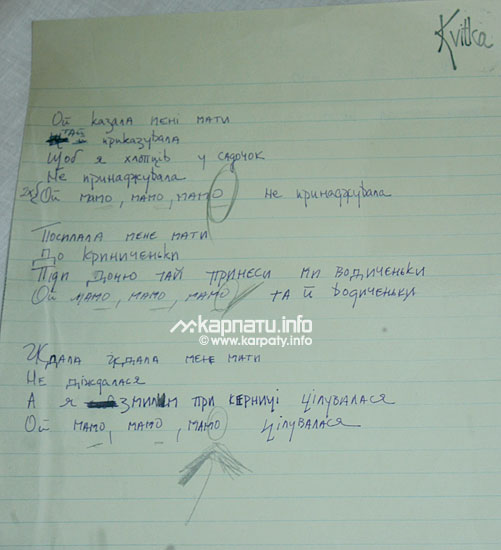 Kvitka
Ой казала мені мати
Тай приказувала
Щоб я хлопців у садочок
Не принаджувала
2х Ой мамо, мамо, мамо Не принаджувала
Посилала мене мати
До криниченьки
Піди доню тай принеси ми водиченьки
Ой мамо, мамо, мамо та й водиченьки
карпати.info
© www.karpaty.info
Ждала ждала мене мати
Не діждалася
А я з милим при керниці цілувалася
Ой мамо, мамо, мамо цілувалася